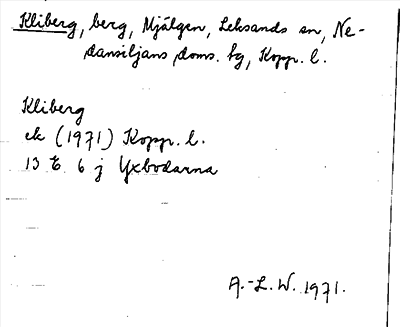 Kliberg, berg, Mjälgen, Leksands sn, Ne-
dansiljans doms. hg, Kopp. l.
Kliberg
ek (1971) Kopp. l.
13 E 6 j Yxbodarna
A.-L. W. 1971.